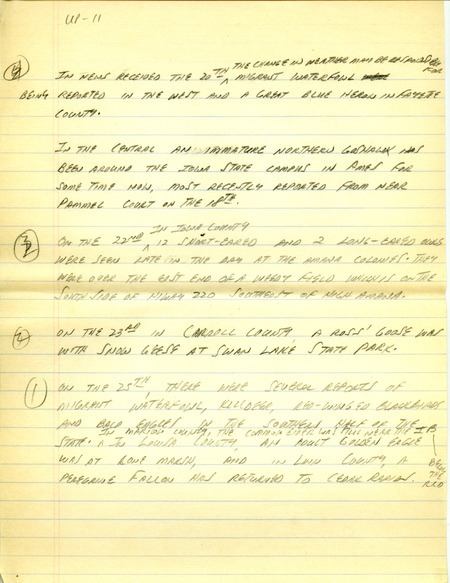 UP-11
④ IN NEWS RECEIVED THE 20TH THE CHANGE IN WEATHER MAY BE RESPONSIBLE FOR MIGRANT WATERFOWL
BEING REPORTED IN THE WEST AND A GREAT BLUE HERON IN FAYETTE
COUNTY.
IN THE CENTRAL AN IMMATURE NORTHERN GOSHAWK HAS
BEEN AROUND THE IOWA STATE CAMPUS IN AMES FOR
SOME TIME NOW, MOST RECENTLY REPORTED FROM NEAR
PAMMEL COURT ON THE 18TH.
③ ON THE 22ND IN IOWA COUNTY 12 SHORT-EARED AND 2 LONG-EARED OWLS
WERE SEEN LATE IN THE DAY AT THE AMANA COLONIES. THEY
WERE OVER THE EAST END OF A WEEDY FIELD WHICH IS ON THE
SOUTH SIDE OF HIWAY 220 SOUTHEAST OF HIGH AMANA.
② ON THE 23RD IN CARROLL COUNTY A ROSS' GOOSE WAS
WITH SNOW GEESE AT SWAN LAKE STATE PARK.
① ON THE 25TH, THERE WERE SEVERAL REPORTS OF
MIGRANT WATERFOWL, KILLDEER, RED-WINGED BLACKBIRDS
AND BALD EAGLES IN THE SOUTHERN HALF OF THE
IN MARION COUNTY, THE COMMON EIDER WAS STILL
STATE. IN LOUISA COUNTY, AN ADULT GOLDEN EAGLE
WAS AT CONE MARSH, AND IN LINN COUNTY, A
PEREGRINE FALCON HAS RETURNED TO CEDAR RAPIDS.